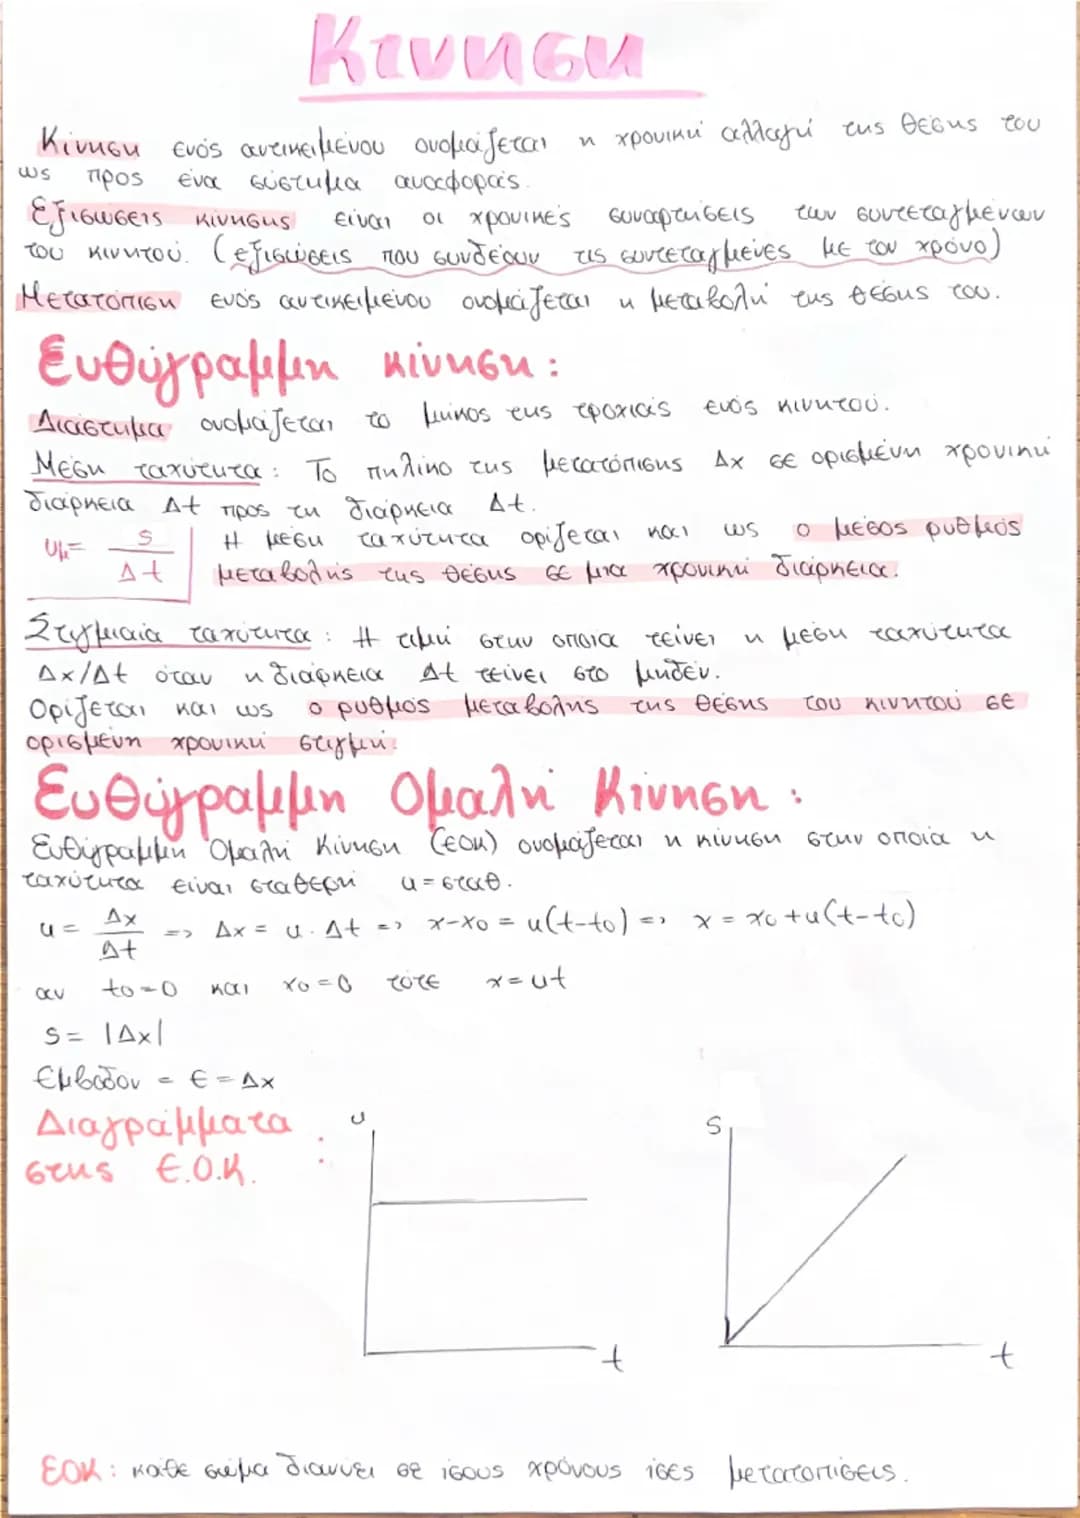 Κίνηση
Κίνηση ενός αντικειμένου ονομάζεται η χρονική αλλαγή της θέσης του
ως προς ένα σύστημα αναφοράς.
Εξισώσεις κίνησης είναι οι χρονικές συναρτήσεις των συντεταγμένων
του κινητού. (εξισώσεις που συνδέουν τις συντεταγμένες με τον χρόνο)
Μετατόπιση ενός αντικειμένου ονομάζεται η μεταβολή της θέσης του.
Ευθύγραμμη κίνηση:
Διάστημα ονομάζεται το μήκος της τροχιάς ενός κινητού.
Μέση ταχύτητα: Το πηλίκο της μετατόπισης Δx σε ορισμένη χρονική
διάρκεια Δt προς τη διάρκεια Δt.
υμ = s / Δt Η μέση ταχύτητα ορίζεται και ως ο μέσος ρυθμός
μεταβολής της θέσης σε μια χρονική διάρκεια.
Στιγμιαία ταχύτητα: Η τιμή στην οποία τείνει η μέση ταχύτητα
Δx/Δt όταν η διάρκεια Δt τείνει στο μηδέν.
Ορίζεται και ως ο ρυθμός μεταβολής της θέσης του κινητού σε
ορισμένη χρονική στιγμή.
Ευθύγραμμη Ομαλή Κίνηση:
Ευθύγραμμη Ομαλή Κίνηση (ΕΟΚ) ονομάζεται η κίνηση στην οποία η
ταχύτητα είναι σταθερή u=σταθ.
u = Δx / Δt => Δx = u · Δt => x-x0 = u(t-t0) => x = x0+u(t-t0)
αν t0=0 και x0=0 τότε x=ut
s= |Δx|
Εμβαδόν = Ε = Δx
Διαγράμματα :
στης Ε.Ο.Κ.
υ
t
s
t
ΕΟΚ: κάθε σώμα διανύει σε ίσους χρόνους ίσες μετατοπίσεις.